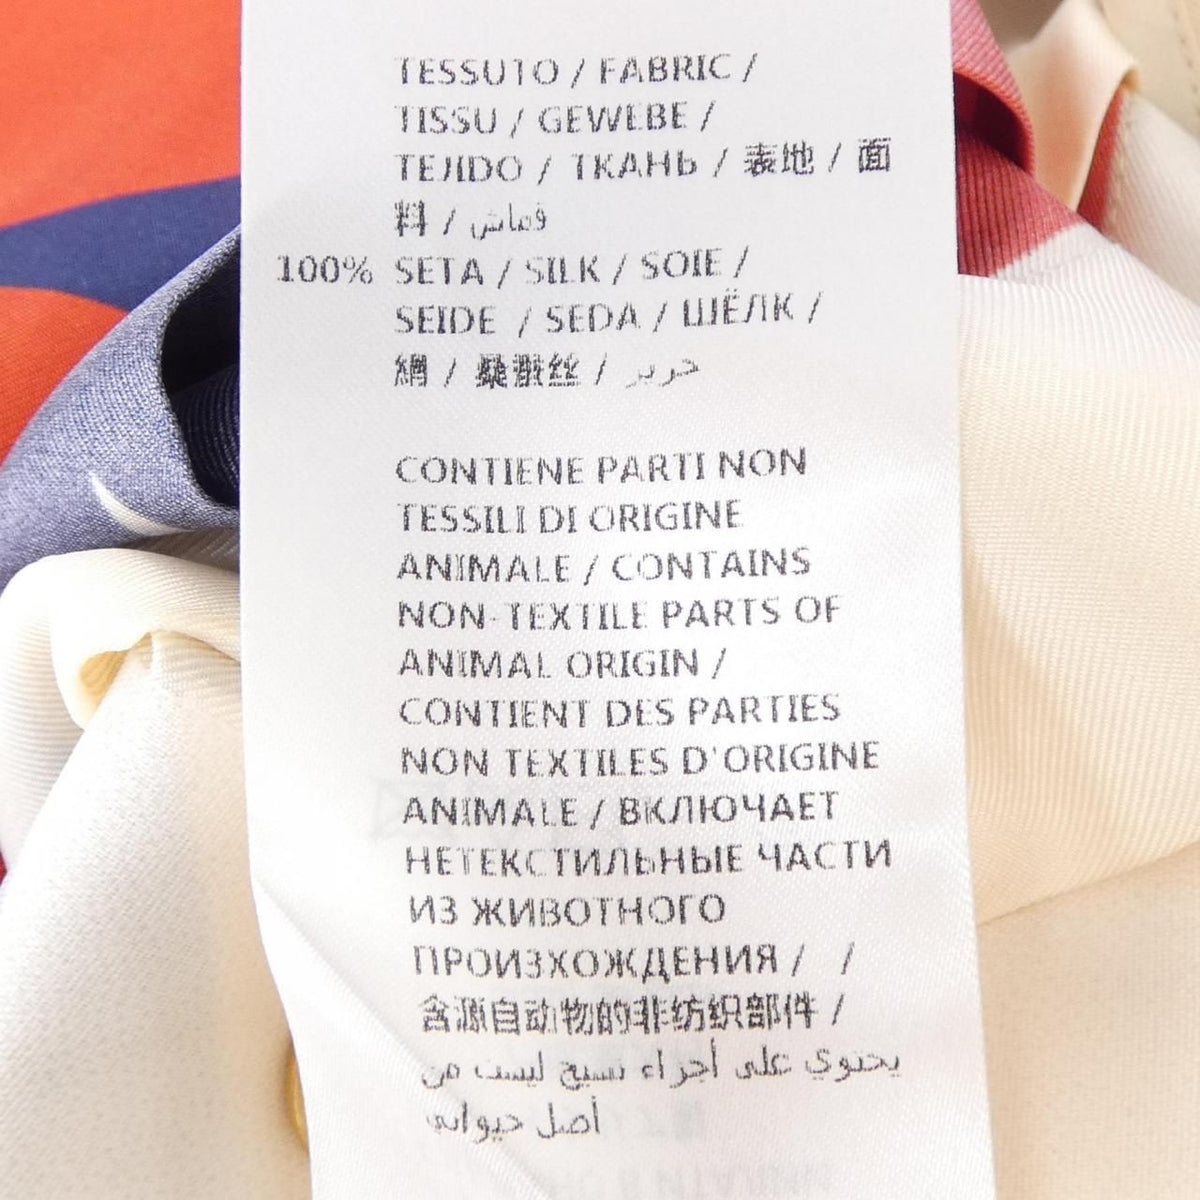 TESSUTO / FABRIC /
TISSU / GEWEBE /
TEJIDO / ТКАНЬ / 表地 / 面
料 / قماش
100% SETA / SILK / SOIE /
SEIDE / SEDA / ШЁЛК /
絹 / 桑蚕丝 / حرير
CONTIENE PARTI NON
TESSILI DI ORIGINE
ANIMALE / CONTAINS
NON-TEXTILE PARTS OF
ANIMAL ORIGIN /
CONTIENT DES PARTIES
NON TEXTILES D'ORIGINE
ANIMALE / ВКЛЮЧАЕТ
НЕТЕКСТИЛЬНЫЕ ЧАСТИ
ИЗ ЖИВОТНОГО
ПРОИЗХОЖДЕНИЯ / /
含源自动物的非纺织部件 /
يحتوي على أجزاء نسيج ليست من
أصل حيواني